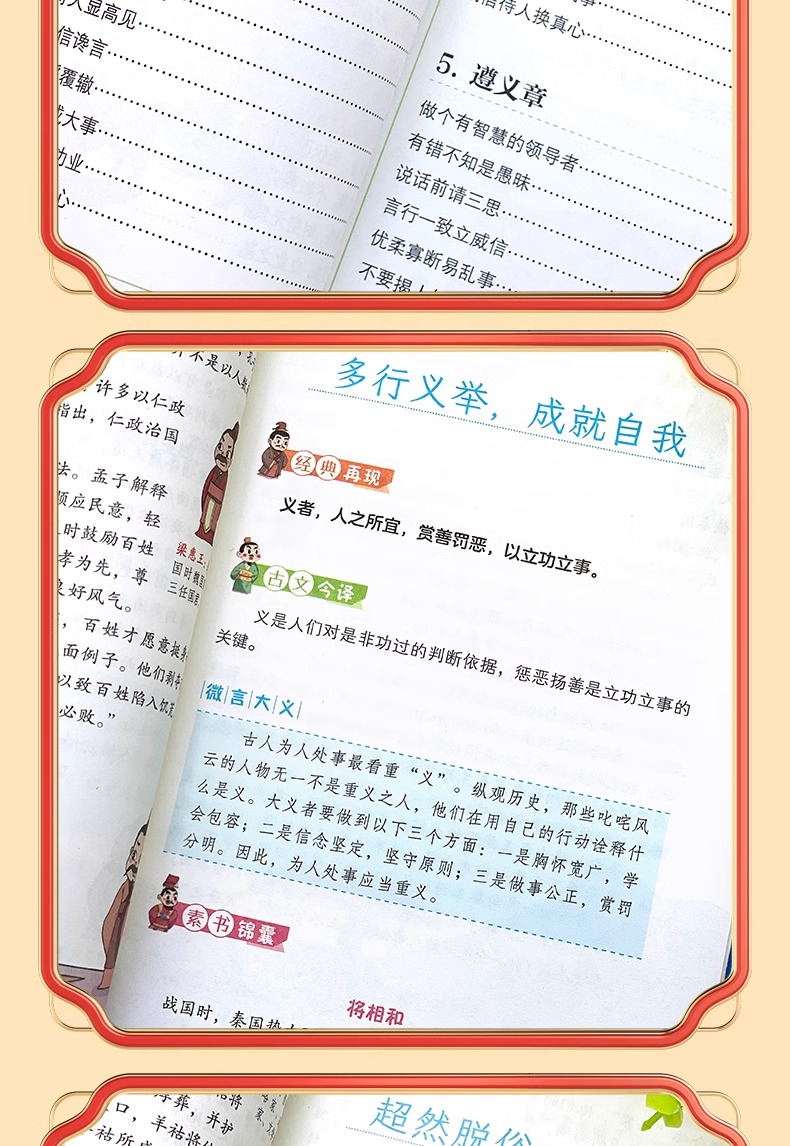 人显高见
信谗言
覆辙
大事
业
心
信待人换真心
5. 遵义章
做个有智慧的领导者
有错不知是愚昧
说话前请三思
言行一致立威信
优柔寡断易乱事
不要揭人
不是以人
许多以仁政
指出，仁政治国
法。孟子解释
顺应民意，轻
时鼓励百姓
孝为先，尊
良好风气。
，百姓才愿意挺身
面例子。他们剥夺
以致百姓陷入饥荒
必败。”
梁惠王：
国时魏国
三任国君
多行义举，成就自我
经典再现
义者，人之所宜，赏善罚恶，以立功立事。
古文今译
义是人们对是非功过的判断依据，惩恶扬善是立功立事的
关键。
微言大义
古人为人处事最看重“义”。纵观历史，那些叱咤风
云的人物无一不是重义之人，他们在用自己的行动诠释什
么是义。大义者要做到以下三个方面：一是胸怀宽广，学
会包容；二是信念坚定，坚守原则；三是做事公正，赏罚
分明。因此，为人处事应当重义。
素书锦囊
将相和
战国时，秦国势
葬，并护
口，羊祜将
祜所
超然脱俗